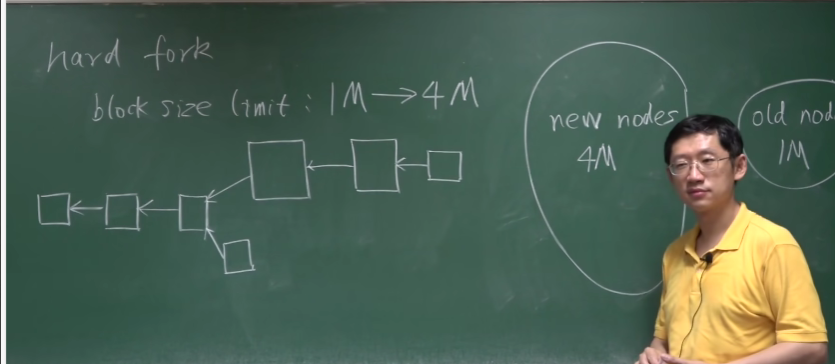 hard fork
block size limit : 1M → 4M
new nodes
4M
old nod
1M